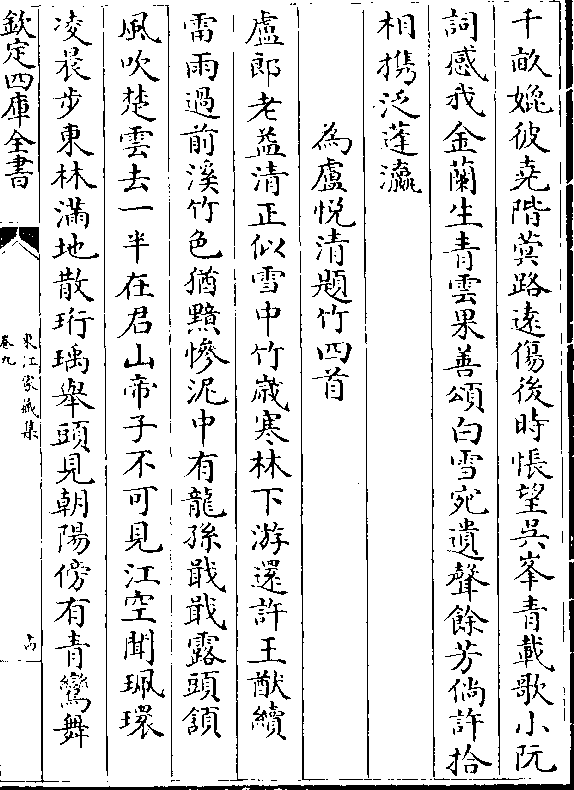 千畝媲彼堯階蓂路遠傷後時悵望吳峯青載歌小阮
詞感我金蘭生青雲果善頌白雪宛遺聲餘芳倘許拾
相携泛蓬瀛
為盧悅清題竹四首
盧郎老益清正似雪中竹歲寒林下游還許王猷續
雷雨過前溪竹色猶黲慘泥中有龍孫戢戢露頭頷
風吹楚雲去一半在君山帝子不可見江空聞珮環
凌晨步東林滿地散珩瑀舉頭見朝陽傍有青鸞舞
欽定四庫全書
東江家藏集
卷九